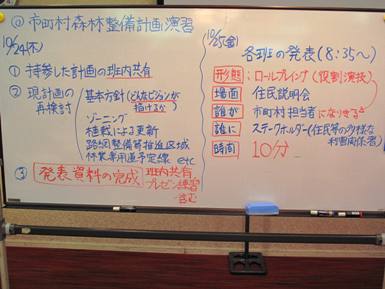 ◎ 市町村森林整備計画演習
10/24(木)
① 持参した計画の班内共有
② 現計画の再検討
基本方針(どんなビジョンが描けるか)
ゾーニング
植栽による更新
路網整備等推進区域
作業専用道予定線 etc
③ 発表資料の完成
班内共有
プレゼン練習
含む
10/25(金)
各班の発表(8:35〜)
形態:ロールプレイング(役割演技)
場面 住民説明会
誰が 市町村担当者になりきる
誰に ステークホルダー(住民等の多様な利害関係者)
時間 10分